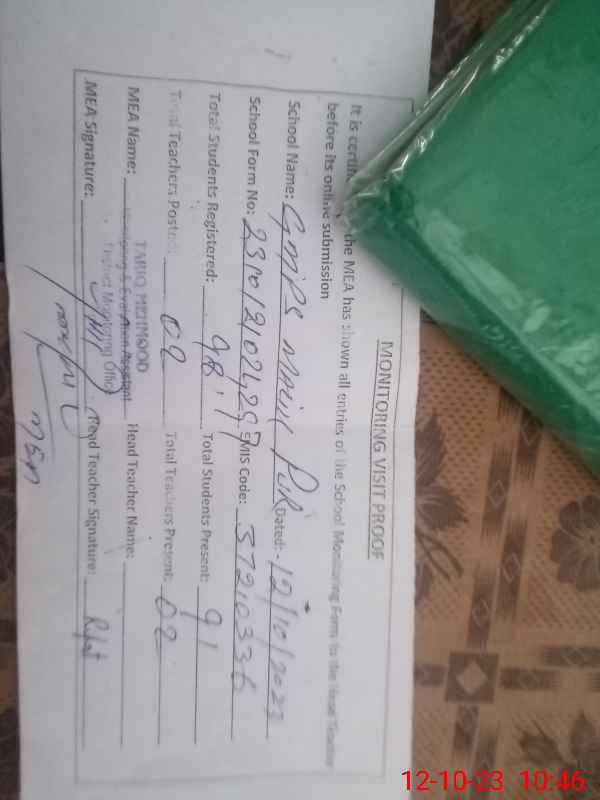 MONITORING VISIT PROOF
It is the MEA has shown all entries of the School Monitoring Form to the Head Teacher
before its online submission
School Name: GMPS Dated:- 12/10/2023
School Form No: EMIS Code: 37210336
Total Students Registered: 98 Total Students Present: 91
Total Teachers Posted: 02 Total Teachers Present: 02
TARIQ MEHMOOD
MEA Name: Monitoring & Evaluation Assistant Head Teacher Name:
District Monitoring Office
MEA Signature: Head Teacher Signature: Rifat
12-10-23 10:46